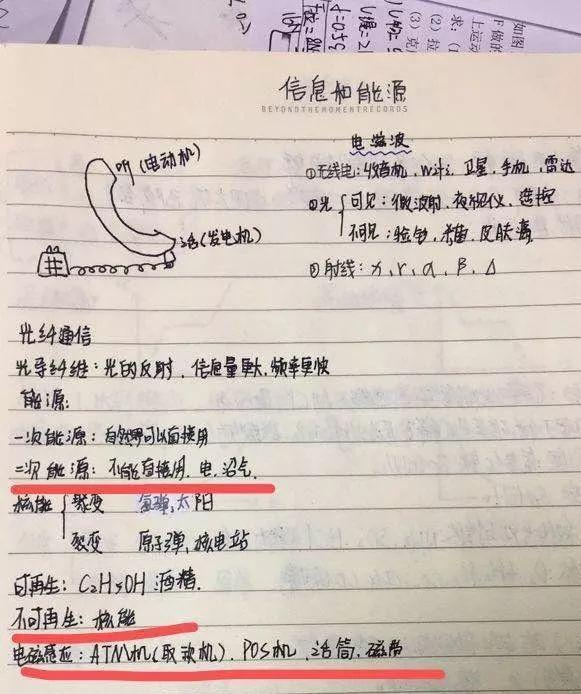 信息和能源
BEYONDTHEMOMENTRECORDS
听(电动机)
话(发电机)
电磁波
①无线电:收音机、WiFi、卫星、手机、雷达
②光
可见:微波射、夜视仪、遥控
不可见:验钞、杀菌、皮肤病
③射线:x、r、α、β、Δ
光纤通信
光导纤维:光的反射、信息量更大,频率更快
能源:
一次能源:自然界可以直接用
二次能源:不能直接用、电、沼气
核能
聚变 氢弹、太阳
裂变 原子弹、核电站
可再生:C2H5OH 酒精.
不可再生:核能
电磁感应:ATM机(取款机)、POS机、话筒、磁带